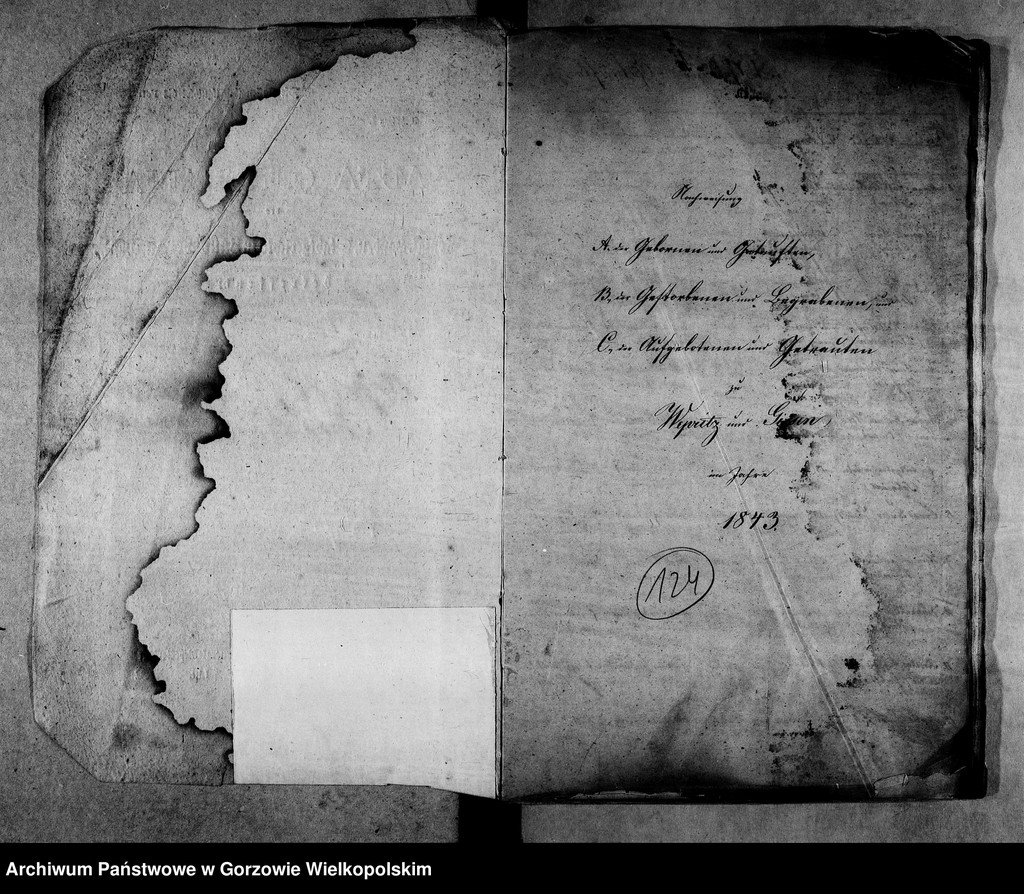 Nachweisung
A. der Gebornen und Getauften,
B, der Gestorbenen und Begrabenen, und
C, der Aufgebotenen und Getrauten
zu
Wepritz und
im Jahre
1843.
124
Archiwum Państwowe w Gorzowie Wielkopolskim